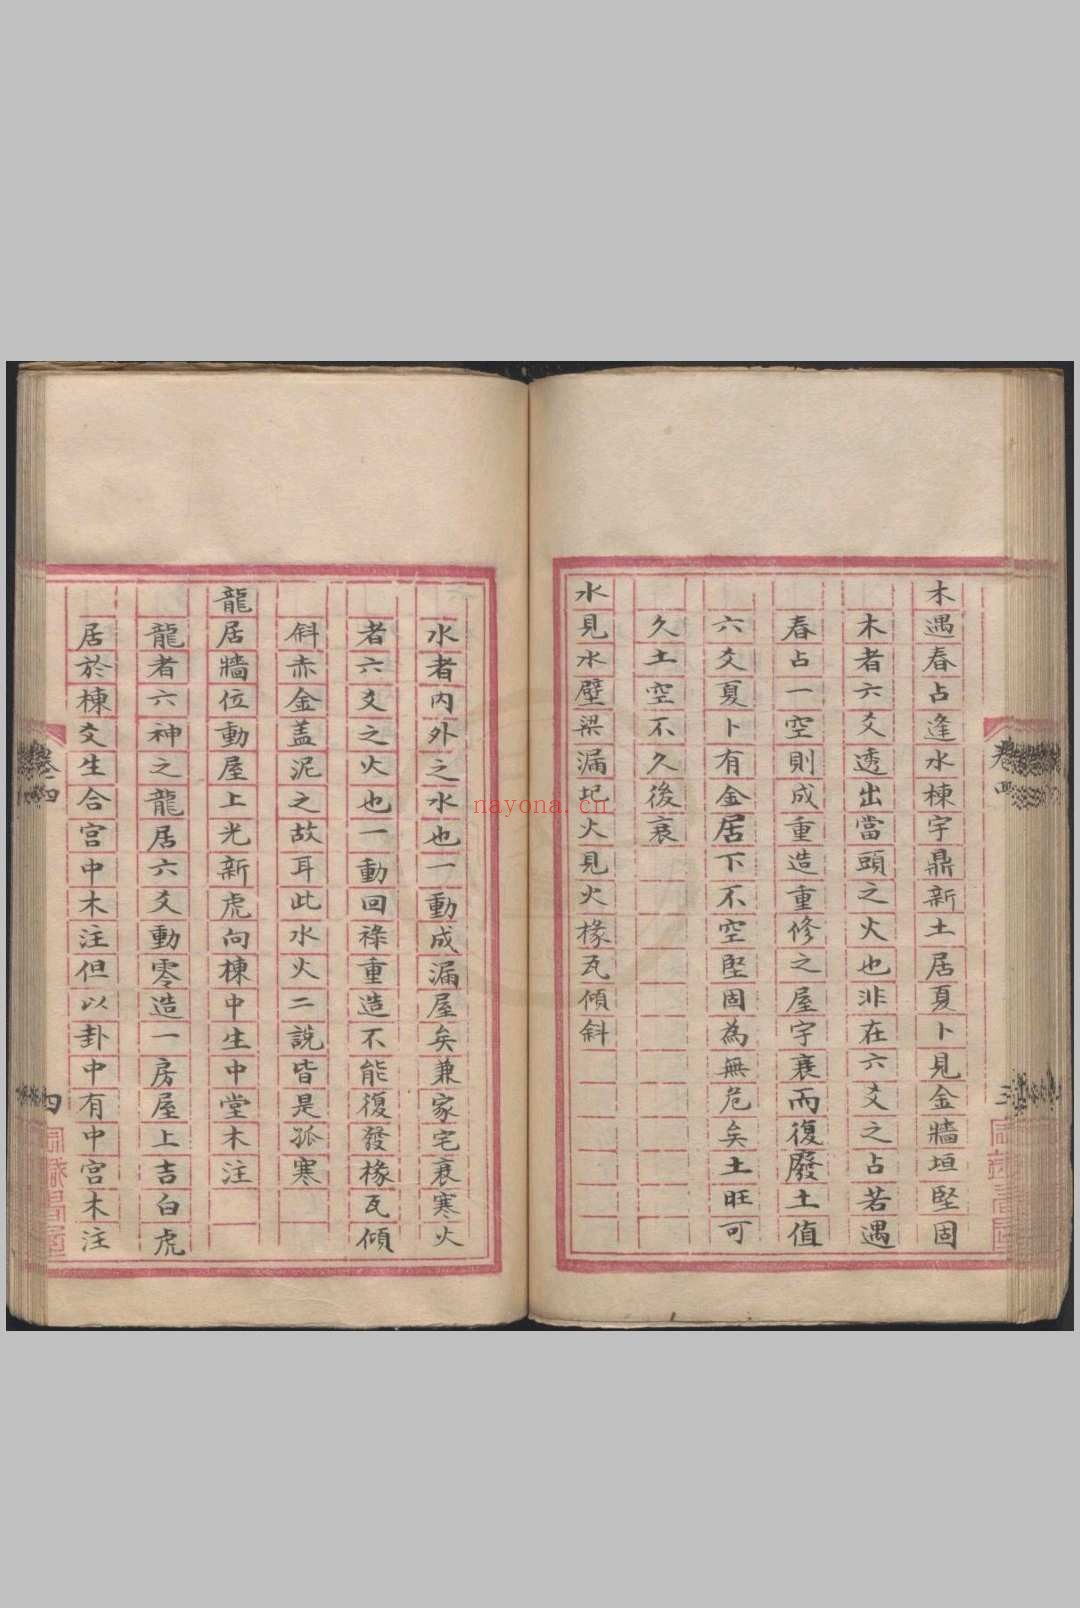 木遇春占逢水棟宇鼎新土居夏卜見金牆垣堅固
木者六爻透出當頭之火也非在六爻之占若遇
春占一空則成重造重修之屋宇衰而復廢土值
六爻夏卜有金居下不空堅固為無危矣土旺可
久土空不久後衰
水見水壁梁漏圮火見火椽瓦傾斜
水者內外之水也一動成漏屋矣兼家宅衰寒火
者六爻之火也一動回祿重造不能復發椽瓦傾
斜赤金盖泥之故耳此水火二說皆是孤寒
龍居牆位動屋上光新虎向棟中生中堂木注
龍者六神之龍居六爻動零造一房屋上吉白虎
居於棟爻生合宮中木注但以卦中有中宮木注
卷四
三
卷四
四
nayona.cn